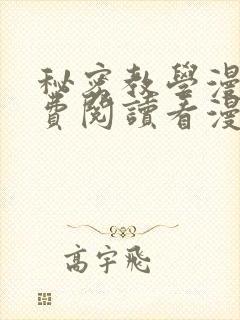 秘密教學漫
費閱讀看漫
高宇飛